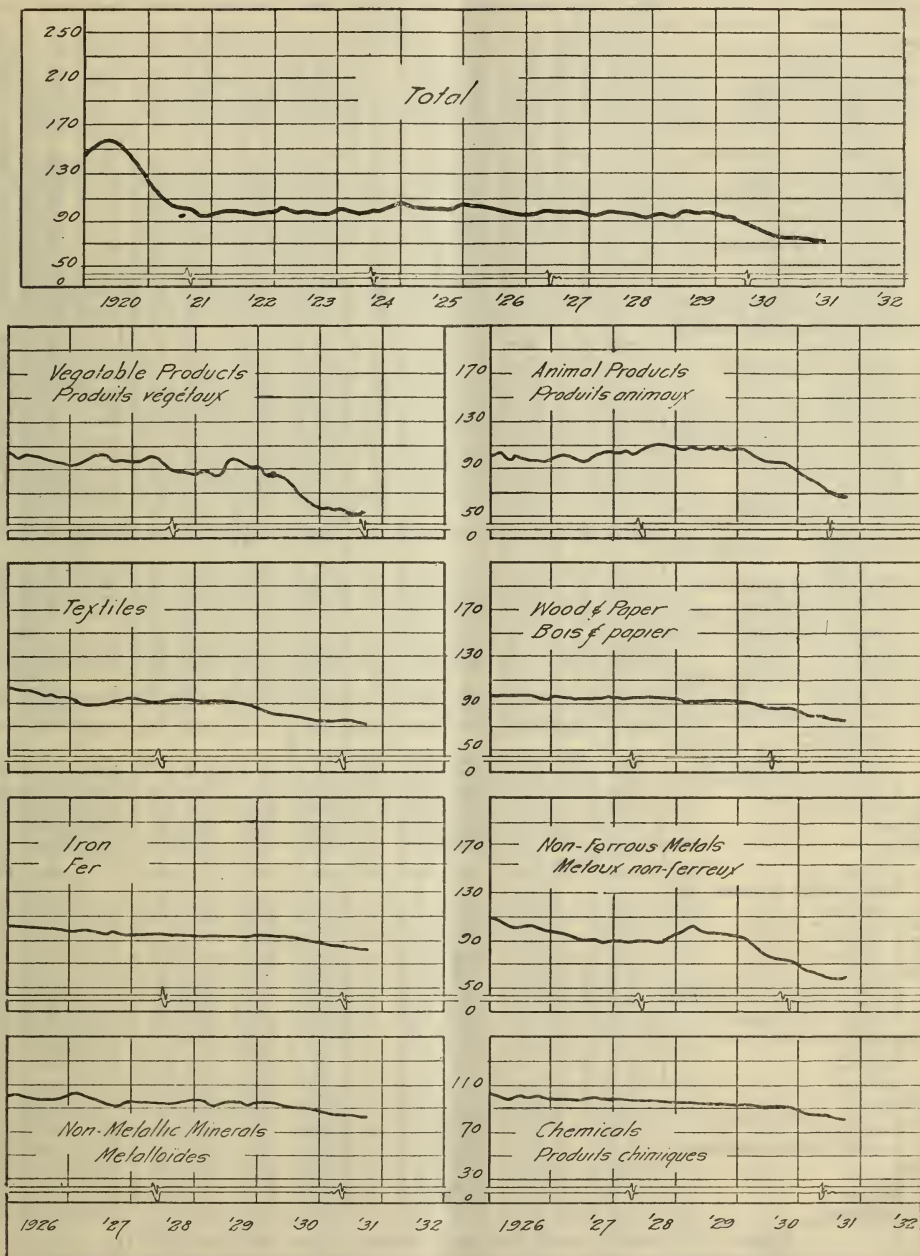 250
210
170
130
90
50
0
Total
1920 '21 '22 '23 '24 '25 '26 '27 '28 '29 '30 '31 '32
Vegatable Products
Produits végétaux
170
130
90
50
0
Animal Products
Produits animaux
Textiles
170
130
90
50
0
Wood & Paper
Bois & papier
Iron
Fer
170
130
90
50
0
Non-Ferrous Metals
Metaux non-ferreux
Non-Metallic Minerals
Metalloïdes
110
70
30
0
Chemicals
Produits chimiques
1926 '27 '28 '29 '30 '31 '32
1926 '27 '28 '29 '30 '31 '32